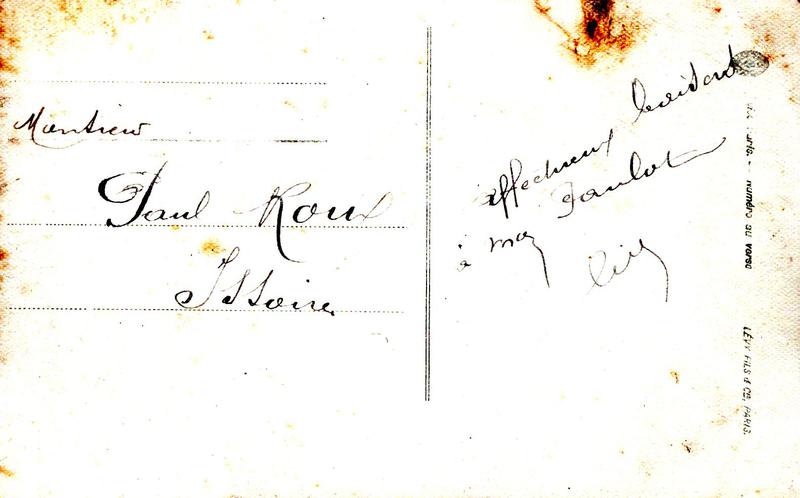 Monsieur
Paul Roux
Issoire
affectueux baisers
à mon Paulot
Lily
numéro au verso
LÉVY FILS & CIE, PARIS.